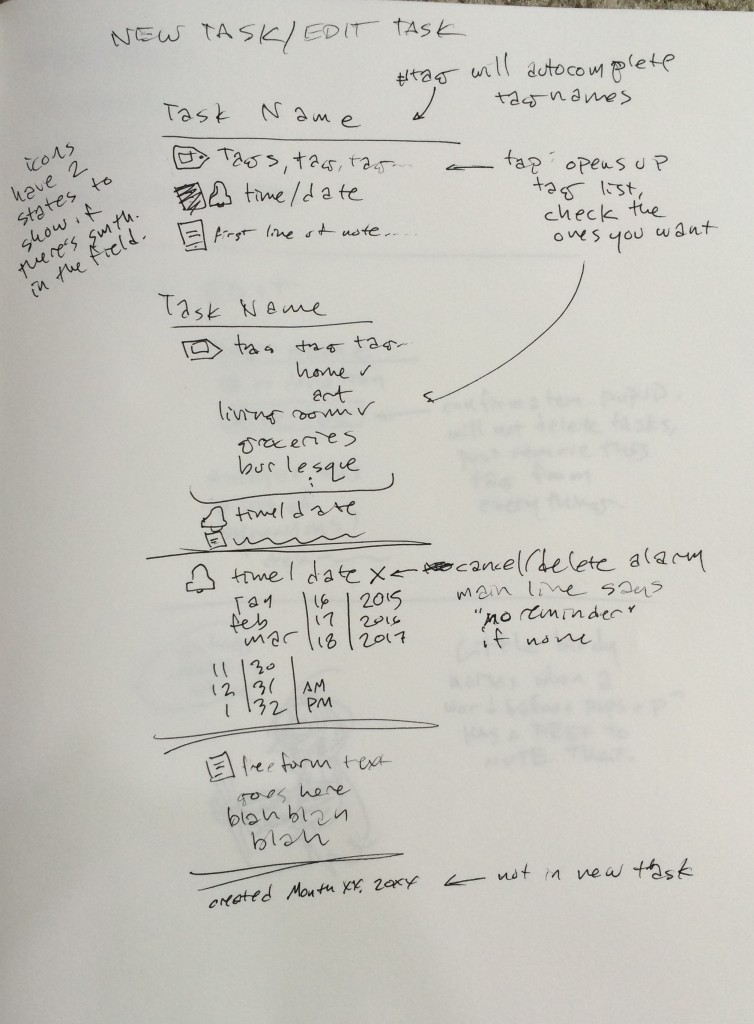 NEW TASK/EDIT TASK
#tag will autocomplete
tag names
Task Name
Tags, tag, tag...
time/date
first line of note.....
icons
have 2
states to
show if
there's smth.
in the field.
tap: opens up
tag list,
check the
ones you want
Task Name
tag tag tag..
home ✓
art
living room ✓
groceries
burlesque
time/date
time/date X
cancel/delete alarm
main line says
"no reminder"
if none
Jan | 16 | 2015
feb | 17 | 2016
mar | 18 | 2017
11 | 30
12 | 31 | AM
1 | 32 | PM
free form text
goes here
blah blah
blah
created Month XX, 20XX
not in new task